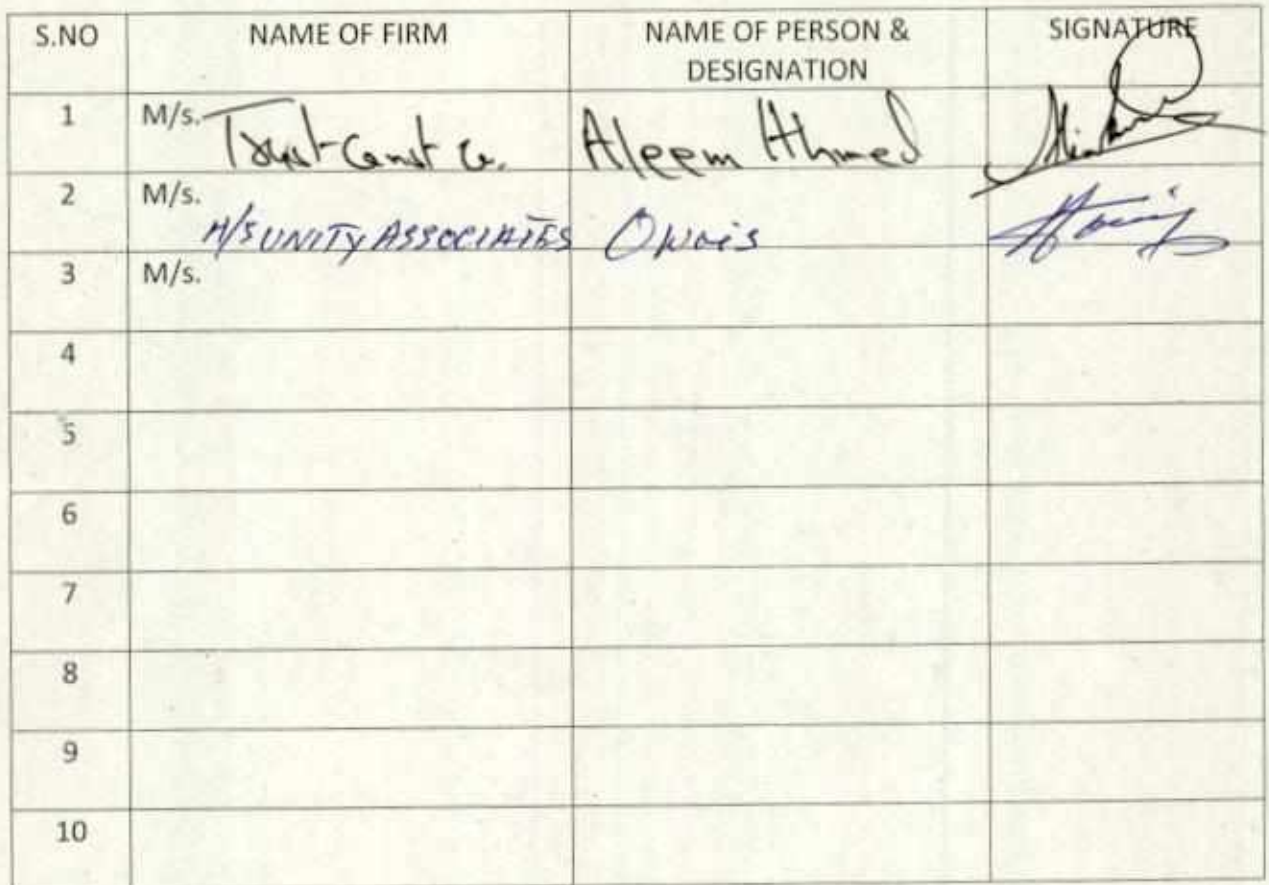 S.NO NAME OF FIRM NAME OF PERSON & SIGNATURE
DESIGNATION
1 M/s. Trust Const Co. Aleem Ahmed
2 M/s.
M/S UNITY ASSOCIATES Owais
3 M/s.
4
5
6
7
8
9
10